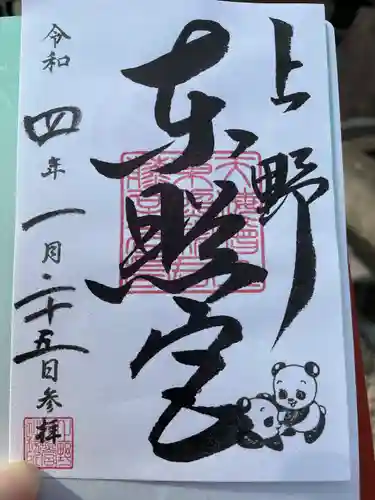 上野
東照宮
令和四年一月二十五日参拝